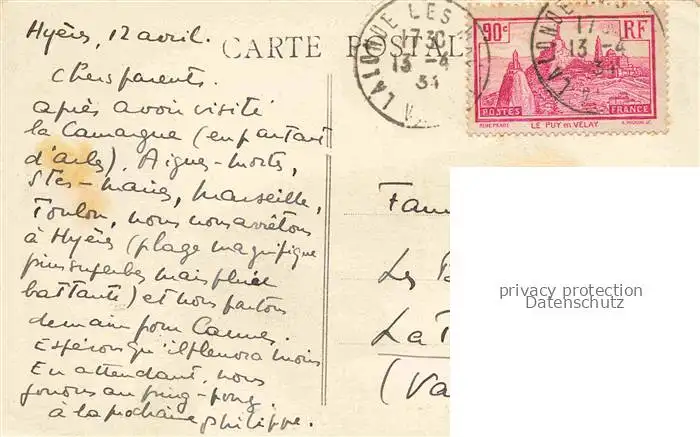 Hyères, 12 avril.
CARTE POSTALE
chers parents.
après avoir visité
la Camargue (en partant
d'arles). Aigues-mortes,
Stes-maries, Marseille,
Toulon, nous nous arrêtons
à Hyères (plage magnifique
pins superbes mais pluie
battante) et nous partons
demain pour Cannes.
Espérons qu'il pleuvra moins
En attendant, nous
jouons au ping-pong.
à la prochaine philippe.
LA LONDE LES
17 30
13 - 4
34
90c
RF
POSTES
FRANCE
LE PUY en VELAY
LA LONDE LES
17 30
13 - 4
34
Fam
Les
La
(Va
privacy protection
Datenschutz